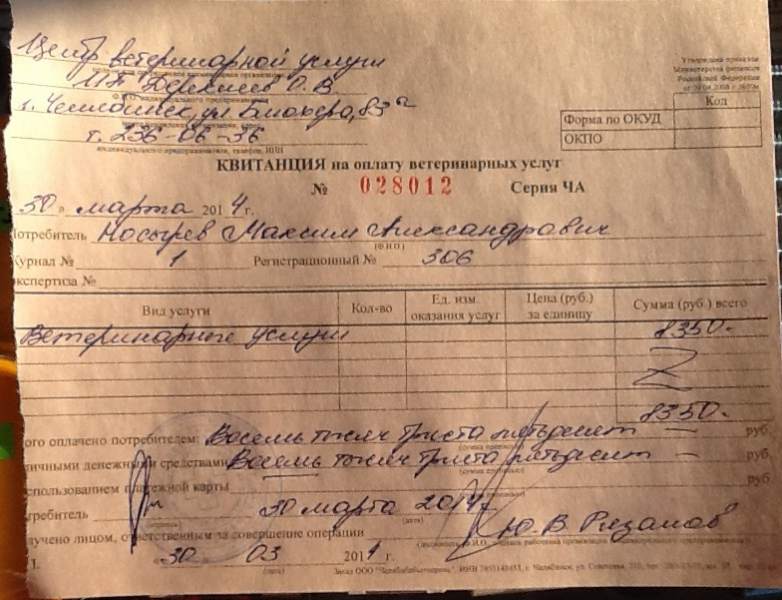 Центр ветеринарной услуги
ИП О. В.
г. Челябинск, ул. Блюхера, 83а
т. 236-06-36
индивидуального предпринимателя, телефон, ИНН
Утверждена приказом
Министерства финансов
Российской Федерации
Код
Форма по ОКУД
ОКПО
КВИТАНЦИЯ на оплату ветеринарных услуг
№ 028012 Серия ЧА
30 » марта 2014 г.
Потребитель Носырев Максим Александрович
(Ф.И.О.)
Журнал № 1 Регистрационный № 306
экспертиза №
Вид услуги Кол-во Ед. изм. оказания услуг Цена (руб.) за единицу Сумма (руб.) всего
Ветеринарные услуги 8350-
8350-
ого оплачено потребителем: Восемь тысяч триста пятьдесят — руб.
личными денежными средствами Восемь тысяч триста пятьдесят — руб.
спользованием платежной карты руб.
требитель 30 марта 2014г.
(подпись) (дата)
лучено лицом, ответственным за совершение операции Ю. В. Рязанов
30 03 2014 г.
(дата)